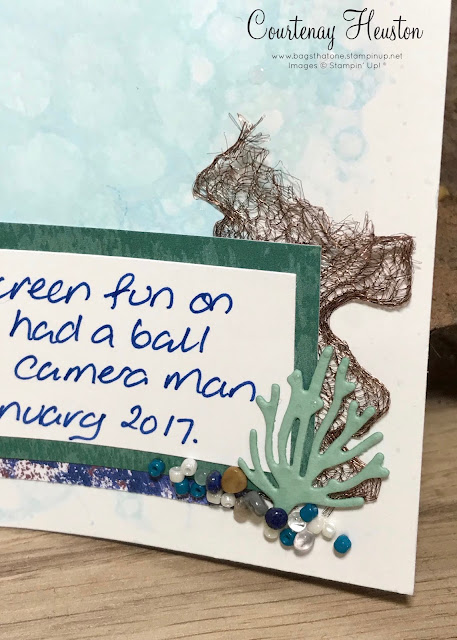 Courtenay Heuston
www.bagsthatone.stampinup.net
Images © Stampin' Up! ®
creen fun on
had a ball
camera man
nuary 2017.